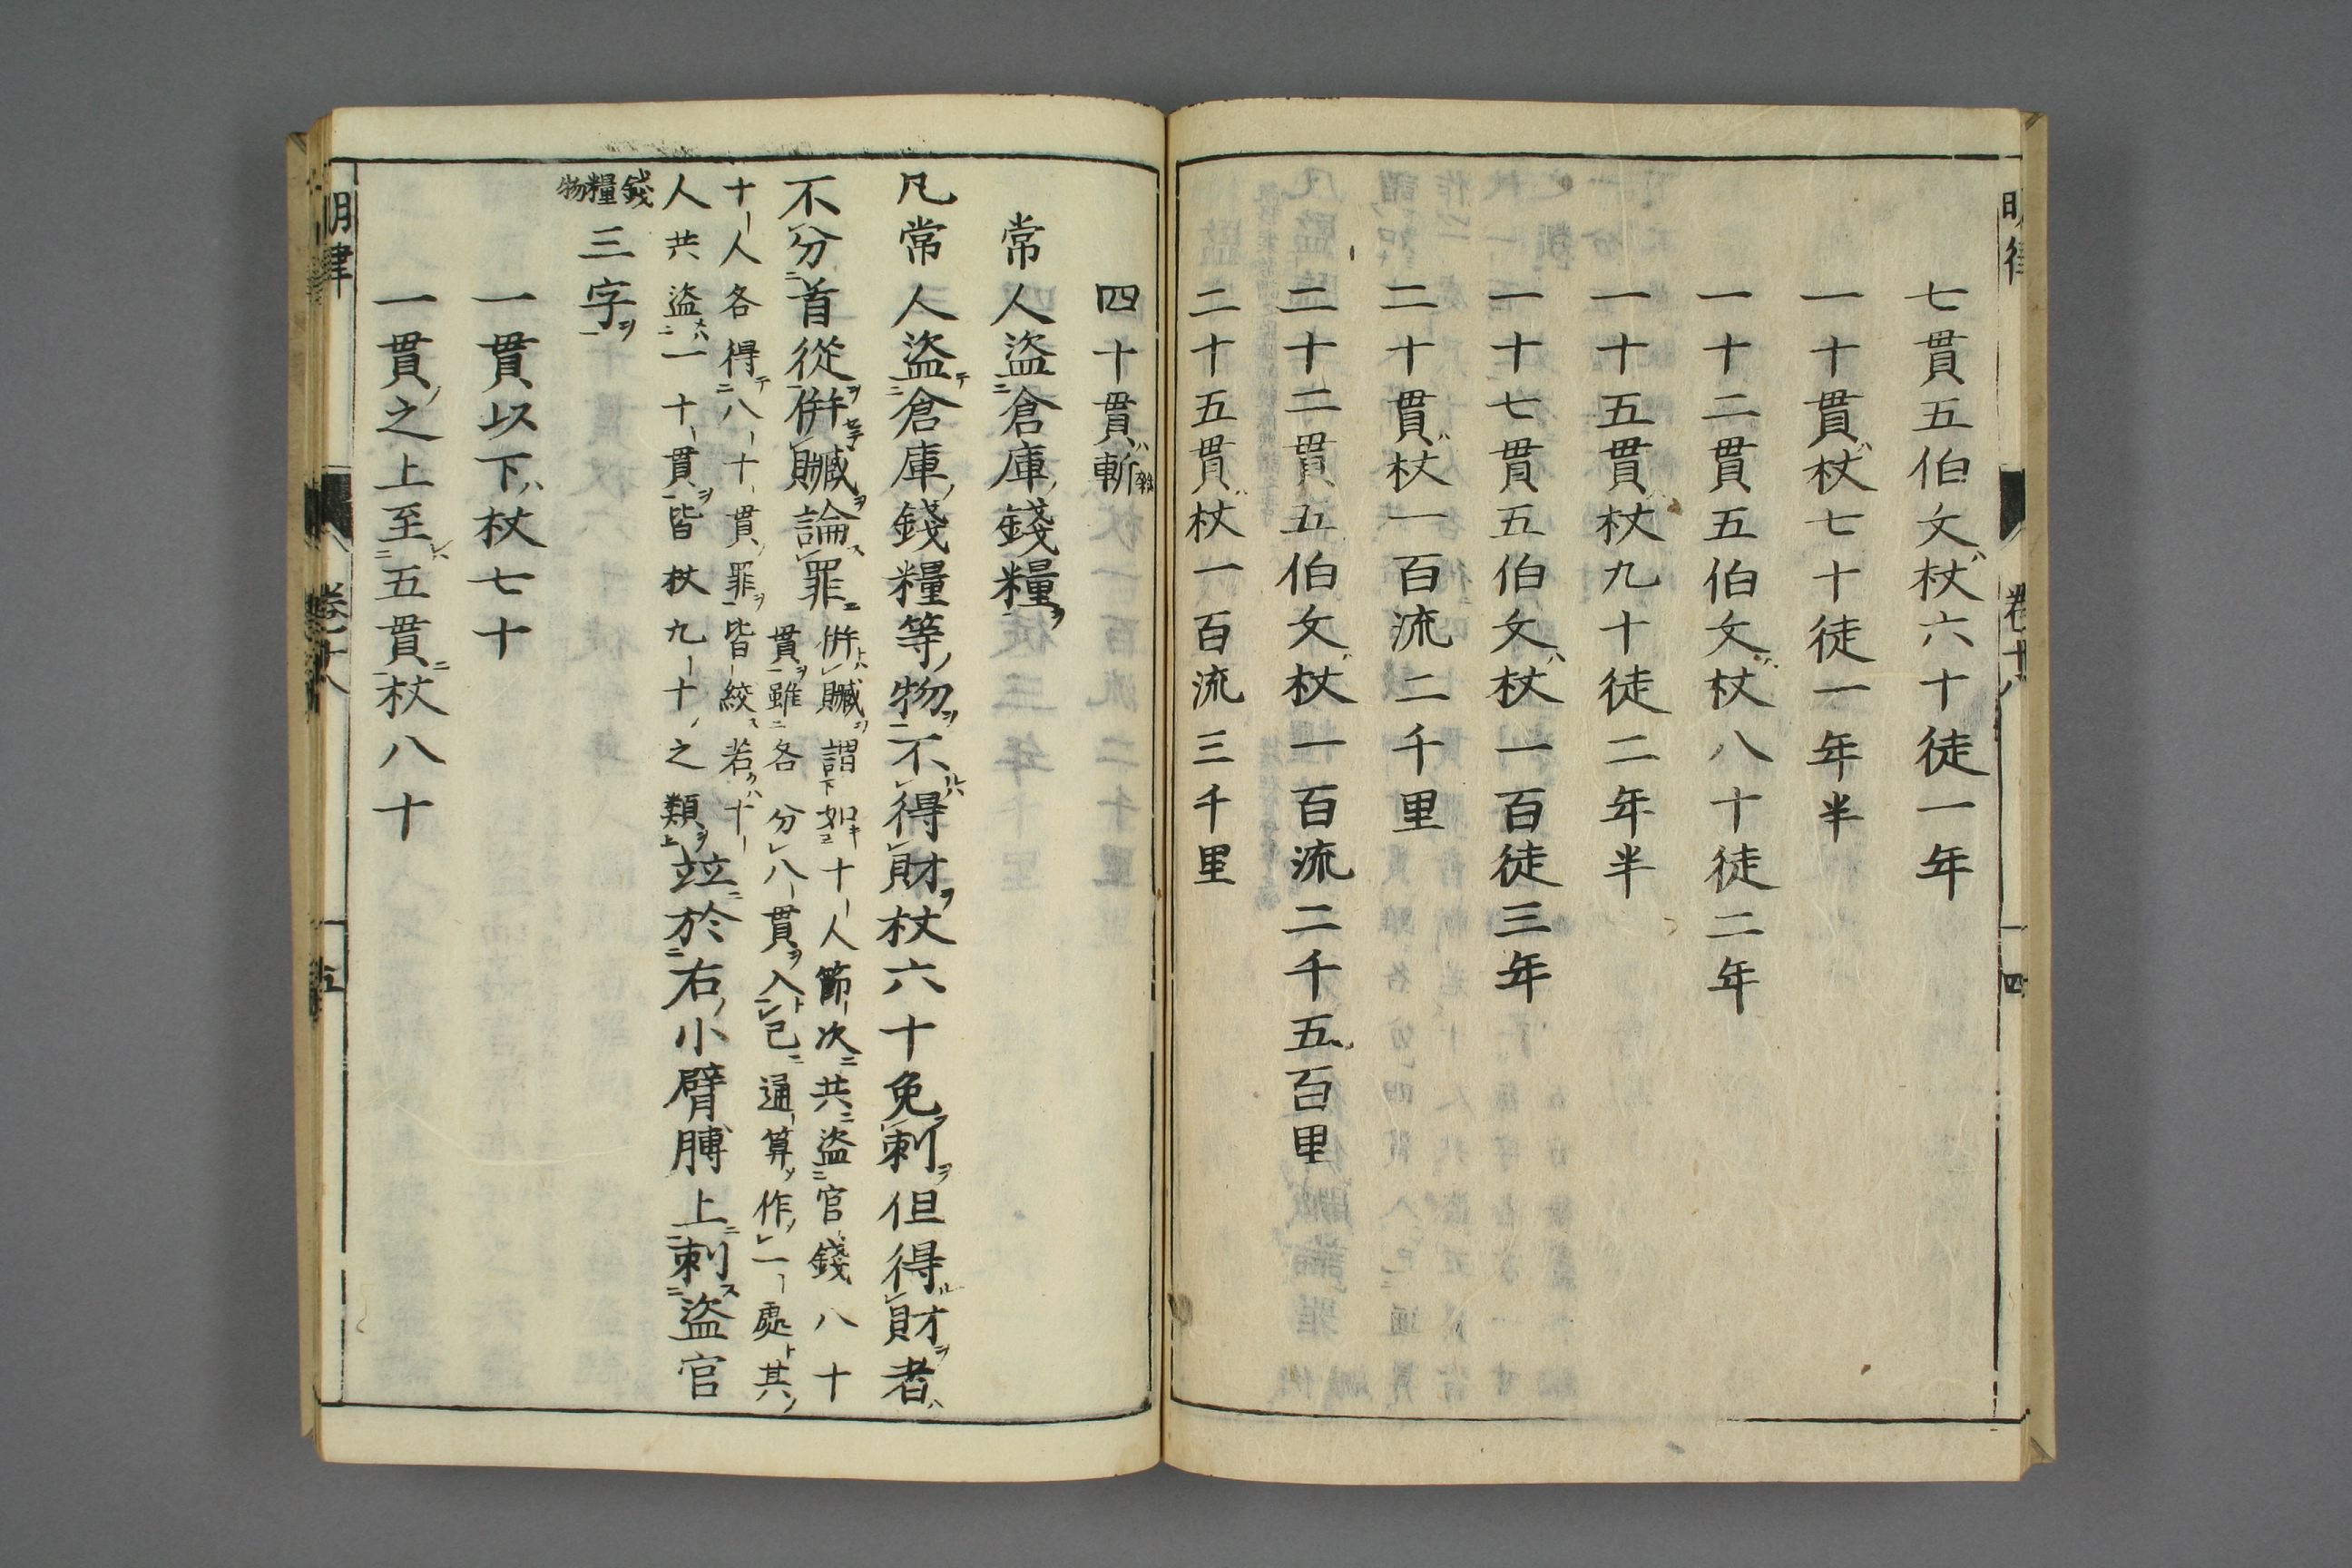 明律
卷十八
四
七貫五伯文杖六十徒一年
一十貫杖七十徒一年半
一十二貫五伯文杖八十徒二年
一十五貫杖九十徒二年半
一十七貫五伯文杖一百徒三年
二十貫杖一百流二千里
二十二貫五伯文杖一百流二千五百里
二十五貫杖一百流三千里
四十貫斬雜
常人盜倉庫錢糧
凡常人盜倉庫錢糧等物不得財杖六十免刺但得財者
不分首從併贓論罪
併贓謂如十人節次共盜官錢八十
貫雖各分八貫入己通算作一處其
十人各得八十貫罪皆絞若十
人共盜一十貫皆杖九十之類
竝於右小臂膊上刺盜官
錢糧物
三字
一貫以下杖七十
一貫之上至五貫杖八十
明律
卷十八
五